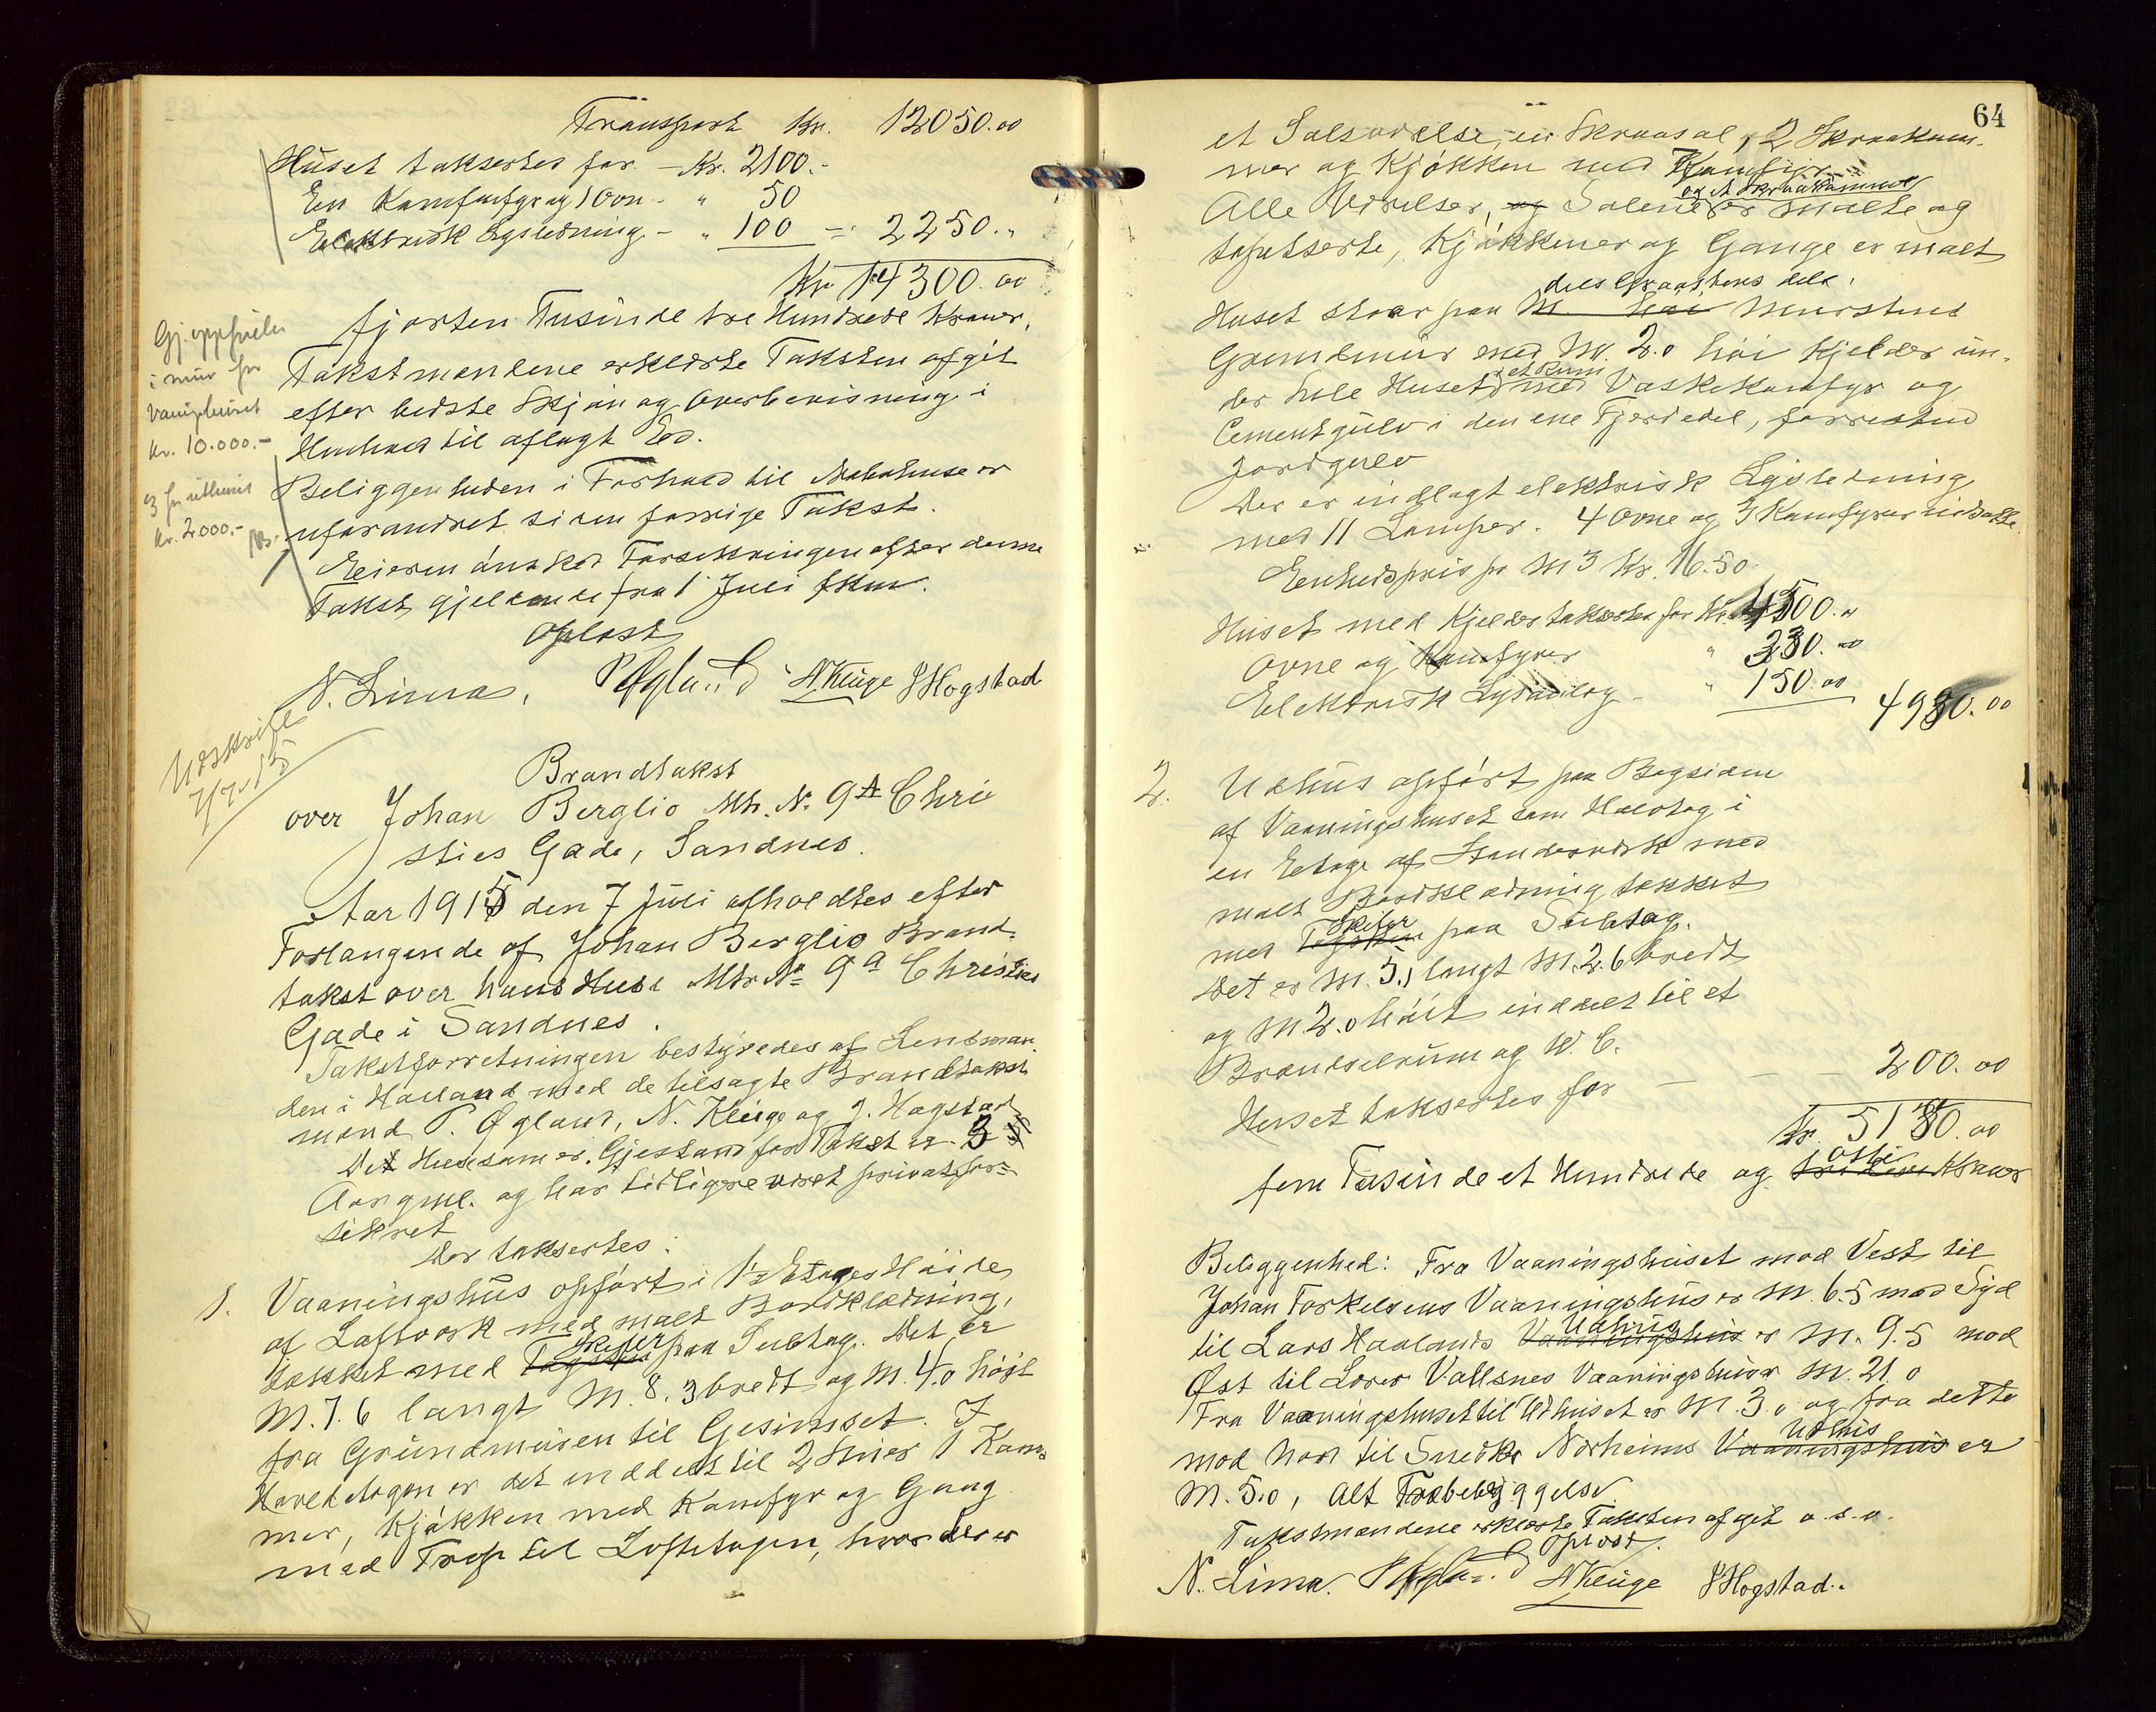 Transport Kr. 12050.00
Huset taksertes for - Kr. 2100.-
En Komfurfyr og 1 Ovn - " 50
Elektrisk Lysledning - " 100 = 2250. "
Kr. 14300.00
fjorten Tusinde tre Hundrede Kroner.
Takstmændene erklærte Taksten afgit
efter bedste Skjøn og Overbevisning i
Henhold til aflagt Ed.
Beliggenheden i Forhold til Nabohuse er
uforandret siden forrige Takst.
Eieren ønsker Forsikringen efter denne
Takst gjeldende fra 1 Juli
Oplæst
N. Lima. P Øgland N Kluge J Hogstad
Gj. oppføres
i mur for
Vaaningshuset
Kr. 10.000.-
og for uthuset
Kr. 2.000.-
Udskrift
7/7-15
Brandtakst
over Johan Berglio Mtr. No 9A Chri
sties Gade, Sandnes.
Aar 1915 den 7 Juli afholdtes efter
Forlangende af Johan Berglio Brand
takst over hans Huse Mtr. No 9a Christies
Gade i Sandnes.
Takstforretningen bestyredes af Lensman
den i Høiland med de tilsagte Brandtakst
mænd P. Øgland, N. Kluge og J. Hogstad
Det Huse som er Gjestand for Takst er 3
Aar gml. og har tidligere været privat for=
sikret
Der taksertes:
1. Vaaningshus opført i 1½ Etages Høide
af Laftverk med malt Bordklædning,
tækket med Tagsten Skifer paa Sultag. Det er
M. 7.6 langt M. 8.3 bredt og M. 4.0 højt
fra Grundmuren til Gesimset. I
Hovedetagen er det inddelt til 2 Stuer 1 Kam=
mer, Kjøkken med Komfyr og Gang
med Trap til Loftetagen, hvor der er
64
et Salsværelse, en Skraasal, 2 Skraakam-
mer og Kjøkken med Komfyr
og et Skraakammer
Alle Værelser, og Salene er malte og
tapetserte, Kjøkkener og Gange er malt
dels Graastens dels
Huset staar paa M. høi Murstens
Grundmur med M. 2.0 høi Kjelder un-
et Rum
der hele Huset med Vaskekomfyr og
Cementgulv i den ene Fjerdedel, forresten
Jordgulv
Der er indlagt elektrisk Lysledning
med 11 Lamper. 4 Ovne og 3 Komfyrer indsatte.
Enhedspris pr M3 Kr. 16.50
Huset med Kjelder taksertes for Kr. 4500."
Ovne og Komfyrer " 330.00
Elektrisk Lysanlæg - " 150.00
4980.00
2. Udhus opført paa Bagsiden
af Vaaningshuset som Halvtag i
en Etage af Standerverk med
malt Bordklædning tækket
Skifer
med Tagsten paa Sultag.
Det er M. 3.1 langt M. 2.6 bredt
og M 2.0 høit inddelt til et
Brændselrum og W. C.
Huset taksertes for - - - 200.00
Kr. 5180.00
otti
fem Tusinde et Hundrede og Kroner
Beliggenhed: Fra Vaaningshuset mod Vest til
Johan Torkelsens Vaaningshus er M. 6.5 mod Syd
Udhus
til Lars Haalands Vaaningshus er M. 9.5 mod
Øst til Lorer Vallsnes Vaaningshus er M. 21.0
Fra Vaaningshuset til Udhuset er M. 3.0 og fra dette
Udhus
mod Nord til Snedker Norheims Vaaningshus er
M. 5.0, Alt Træbebyggelse
Takstmændene erklærte Taksten afgit o. s. v.
Oplæst.
N. Lima. P Øgland N Kluge J Hogstad.